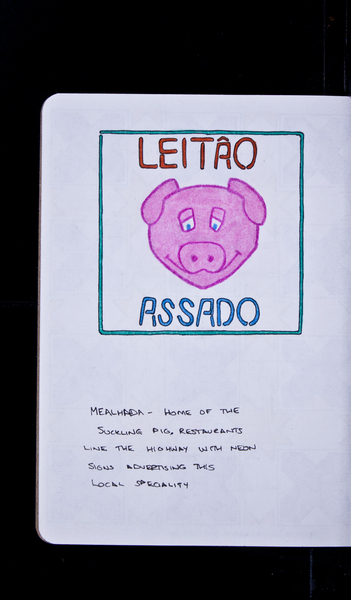 LEITÃO
ASSADO
MEALHADA - HOME OF THE
SUCKLING PIG, RESTAURANTS
LINE THE HIGHWAY WITH NEON
SIGNS ADVERTISING THIS
LOCAL SPECIALITY